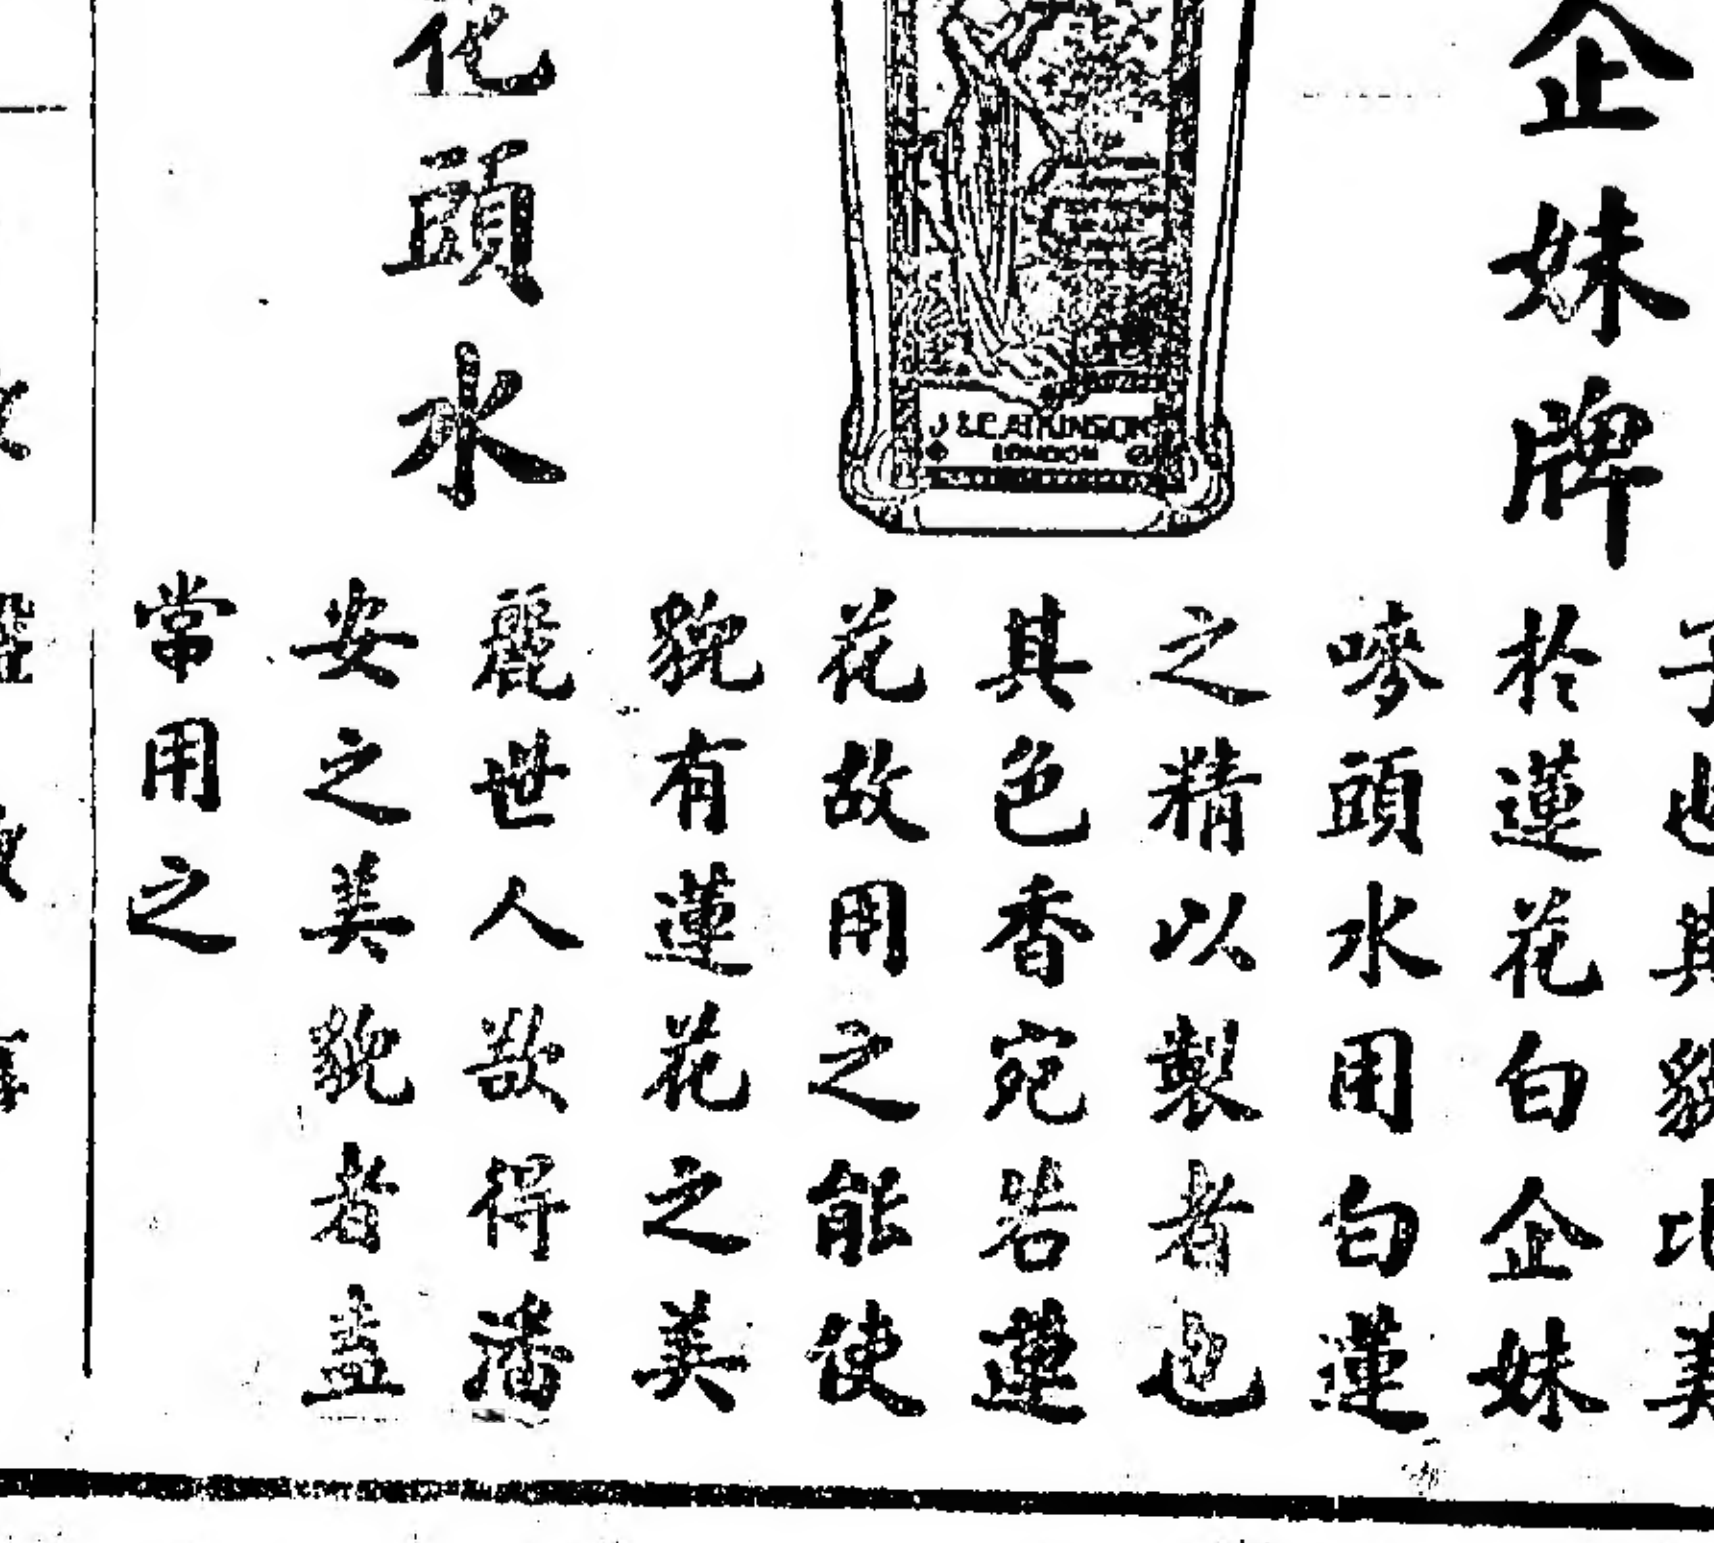 企妹牌
J & E ATKINSON
LONDON
花頭水
子也其貌比美
於蓮花白企妹
嘜頭水用白蓮
之精以製者也
其色香宛若蓮
花故用之能使
貌有蓮花之美
麗世人欲得潘
安之美貌者盍
常用之